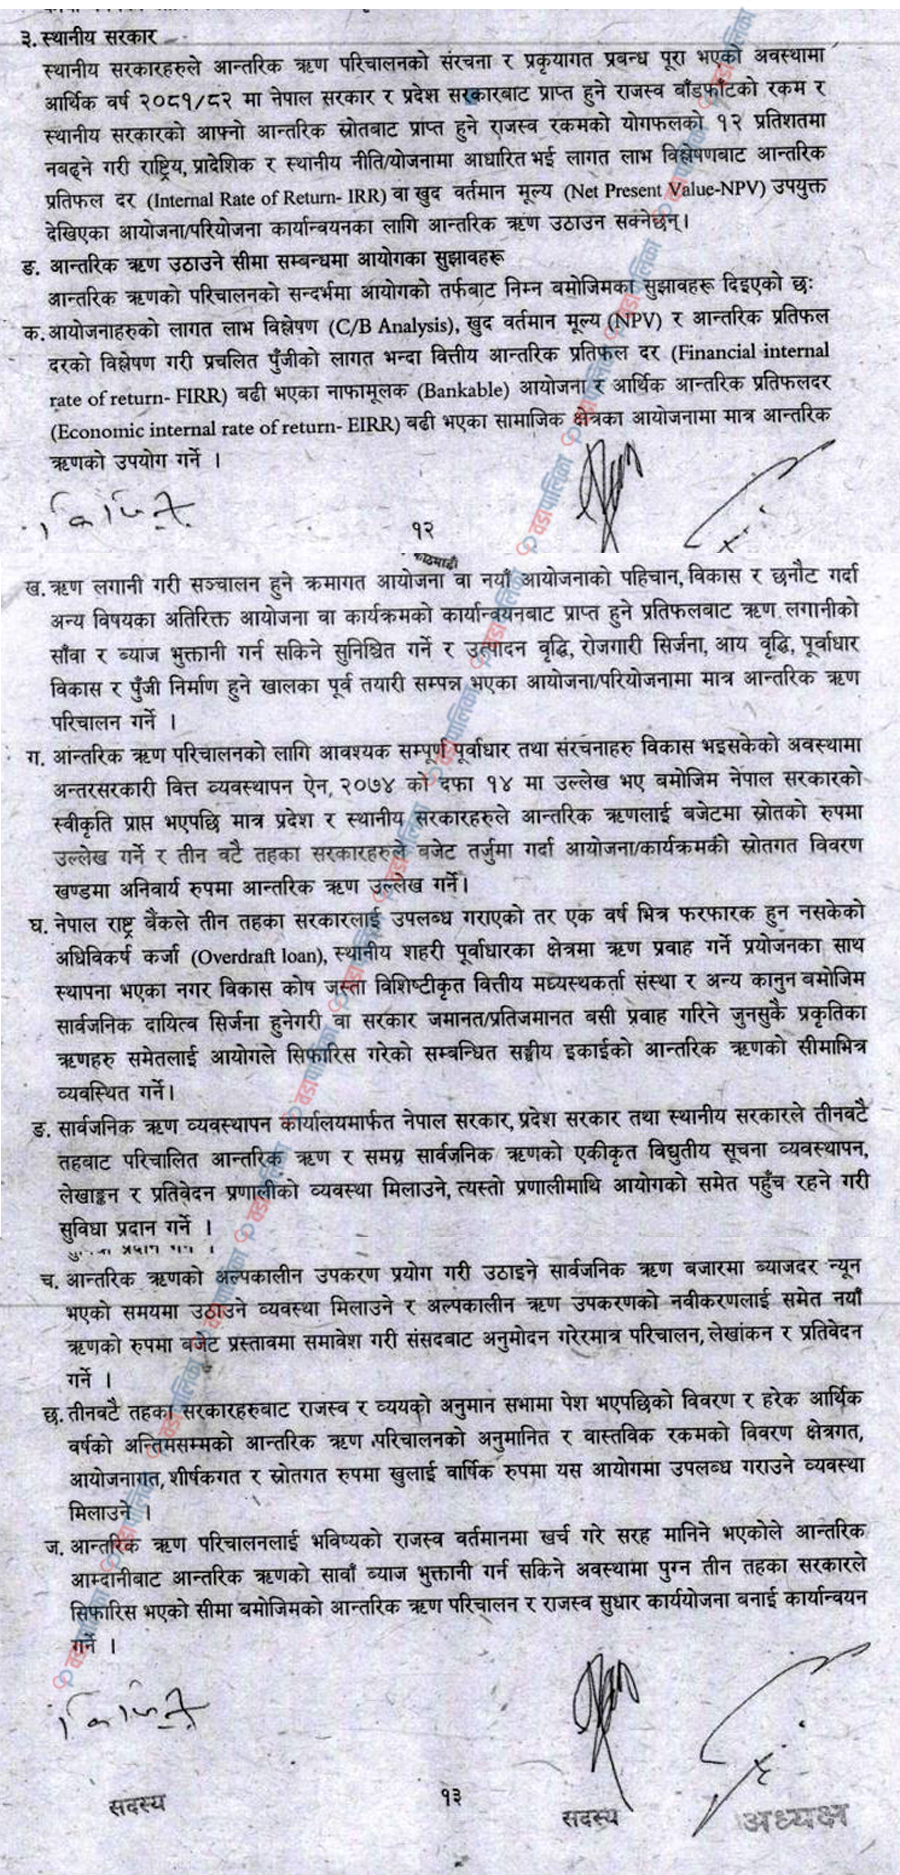 ३. स्थानीय सरकार
स्थानीय सरकारहरुले आन्तरिक ऋण परिचालनको संरचना र प्रकृयागत प्रबन्ध पूरा भएको अवस्थामा
आर्थिक वर्ष २०८१/८२ मा नेपाल सरकार र प्रदेश सरकारबाट प्राप्त हुने राजस्व बाँडफाँटको रकम र
स्थानीय सरकारको आफ्नो आन्तरिक स्रोतबाट प्राप्त हुने राजस्व रकमको योगफलको १२ प्रतिशतमा
नबढ्ने गरी राष्ट्रिय, प्रादेशिक र स्थानीय नीति/योजनामा आधारित भई लागत लाभ विश्लेषणबाट आन्तरिक
प्रतिफल दर (Internal Rate of Return- IRR) वा खुद वर्तमान मूल्य (Net Present Value-NPV) उपयुक्त
देखिएका आयोजना/परियोजना कार्यान्वयनका लागि आन्तरिक ऋण उठाउन सक्नेछन्।
ङ. आन्तरिक ऋण उठाउने सीमा सम्बन्धमा आयोगका सुझावहरू
आन्तरिक ऋणको परिचालनको सन्दर्भमा आयोगको तर्फबाट निम्न बमोजिमका सुझावहरू दिइएको छः
क. आयोजनाहरुको लागत लाभ विश्लेषण (C/B Analysis), खुद वर्तमान मूल्य (NPV) र आन्तरिक प्रतिफल
दरको विश्लेषण गरी प्रचलित पुँजीको लागत भन्दा वित्तीय आन्तरिक प्रतिफल दर (Financial internal
rate of return- FIRR) बढी भएका नाफामूलक (Bankable) आयोजना र आर्थिक आन्तरिक प्रतिफलदर
(Economic internal rate of return- EIRR) बढी भएका सामाजिक क्षेत्रका आयोजनामा मात्र आन्तरिक
ऋणको उपयोग गर्ने ।
१२
ख. ऋण लगानी गरी सञ्चालन हुने क्रमागत आयोजना वा नयाँ आयोजनाको पहिचान, विकास र छनौट गर्दा
अन्य विषयका अतिरिक्त आयोजना वा कार्यक्रमको कार्यान्वयनबाट प्राप्त हुने प्रतिफलबाट ऋण लगानीको
साँवा र ब्याज भुक्तानी गर्न सकिने सुनिश्चित गर्ने र उत्पादन वृद्धि, रोजगारी सिर्जना, आय वृद्धि, पूर्वाधार
विकास र पुँजी निर्माण हुने खालका पूर्व तयारी सम्पन्न भएका आयोजना/परियोजनामा मात्र आन्तरिक ऋण
परिचालन गर्ने ।
ग. आन्तरिक ऋण परिचालनको लागि आवश्यक सम्पूर्ण पूर्वाधार तथा संरचनाहरु विकास भइसकेको अवस्थामा
अन्तरसरकारी वित्त व्यवस्थापन ऐन, २०७४ को दफा १४ मा उल्लेख भए बमोजिम नेपाल सरकारको
स्वीकृति प्राप्त भएपछि मात्र प्रदेश र स्थानीय सरकारहरुले आन्तरिक ऋणलाई बजेटमा स्रोतको रुपमा
उल्लेख गर्ने र तीन वटै तहका सरकारहरुले बजेट तर्जुमा गर्दा आयोजना/कार्यक्रमको स्रोतगत विवरण
खण्डमा अनिवार्य रुपमा आन्तरिक ऋण उल्लेख गर्ने।
घ. नेपाल राष्ट्र बैंकले तीन तहका सरकारलाई उपलब्ध गराएको तर एक वर्ष भित्र फरफारक हुन नसकेको
अधिविकर्ष कर्जा (Overdraft loan), स्थानीय शहरी पूर्वाधारका क्षेत्रमा ऋण प्रवाह गर्ने प्रयोजनका साथ
स्थापना भएका नगर विकास कोष जस्ता विशिष्टीकृत वित्तीय मध्यस्थकर्ता संस्था र अन्य कानुन बमोजिम
सार्वजनिक दायित्व सिर्जना हुनेगरी वा सरकार जमानत/प्रतिजमानत बसी प्रवाह गरिने जुनसुकै प्रकृतिका
ऋणहरु समेतलाई आयोगले सिफारिस गरेको सम्बन्धित सङ्घीय इकाईको आन्तरिक ऋणको सीमाभित्र
व्यवस्थित गर्ने।
ङ. सार्वजनिक ऋण व्यवस्थापन कार्यालयमार्फत नेपाल सरकार, प्रदेश सरकार तथा स्थानीय सरकारले तीनवटै
तहबाट परिचालित आन्तरिक ऋण र समग्र सार्वजनिक ऋणको एकीकृत विद्युतीय सूचना व्यवस्थापन,
लेखाङ्कन र प्रतिवेदन प्रणालीको व्यवस्था मिलाउने, त्यस्तो प्रणालीमाथि आयोगको समेत पहुँच रहने गरी
सुविधा प्रदान गर्ने ।
च. आन्तरिक ऋणको अल्पकालीन उपकरण प्रयोग गरी उठाइने सार्वजनिक ऋण बजारमा ब्याजदर न्यून
भएको समयमा उठाउने व्यवस्था मिलाउने र अल्पकालीन ऋण उपकरणको नवीकरणलाई समेत नयाँ
ऋणको रुपमा बजेट प्रस्तावमा समावेश गरी संसदबाट अनुमोदन गरेरमात्र परिचालन, लेखांकन र प्रतिवेदन
गर्ने ।
छ. तीनवटै तहका सरकारहरुबाट राजस्व र व्ययको अनुमान सभामा पेश भएपछिको विवरण र हरेक आर्थिक
वर्षको अन्तिमसम्मको आन्तरिक ऋण परिचालनको अनुमानित र वास्तविक रकमको विवरण क्षेत्रगत,
आयोजनागत, शीर्षकगत र स्रोतगत रुपमा खुलाई वार्षिक रुपमा यस आयोगमा उपलब्ध गराउने व्यवस्था
मिलाउने ।
ज. आन्तरिक ऋण परिचालनलाई भविष्यको राजस्व वर्तमानमा खर्च गरे सरह मानिने भएकोले आन्तरिक
आम्दानीबाट आन्तरिक ऋणको सावाँ ब्याज भुक्तानी गर्न सकिने अवस्थामा पुग्न तीन तहका सरकारले
सिफारिस भएको सीमा बमोजिमको आन्तरिक ऋण परिचालन र राजस्व सुधार कार्ययोजना बनाई कार्यान्वयन
गर्ने ।
सदस्य
१३
सदस्य
अध्यक्ष
वडापालिका